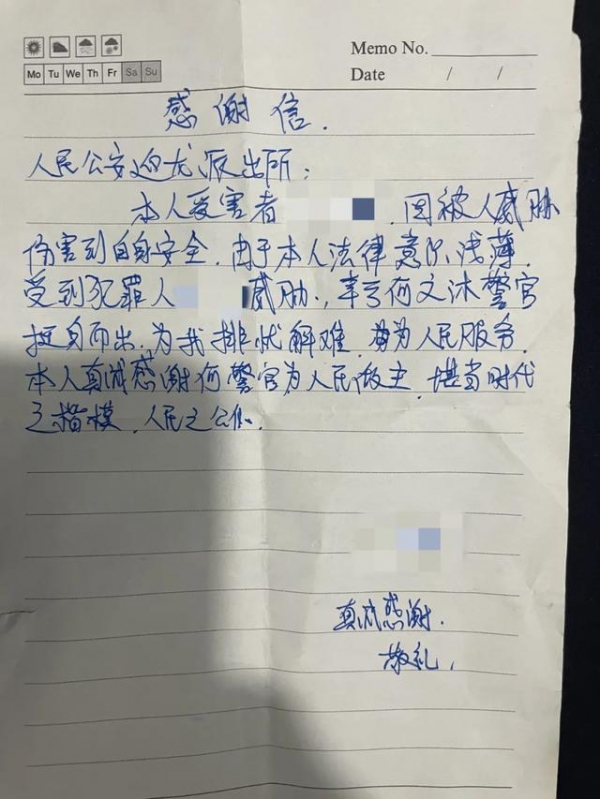 Memo No.
Mo Tu We Th Fr Sa Su
Date / /
感谢信.
人民公安迎龙派出所:
本人受害者 , 因被人威胁
伤害到自身安全, 由于本人法律意识浅薄,
受到犯罪人 威胁, 幸亏何文沐警官
挺身而出, 为我排忧解难, 为人民服务,
本人真诚感谢何警官为人民做主, 堪当时代
之楷模, 人民之公仆.
真诚感谢.
敬礼,